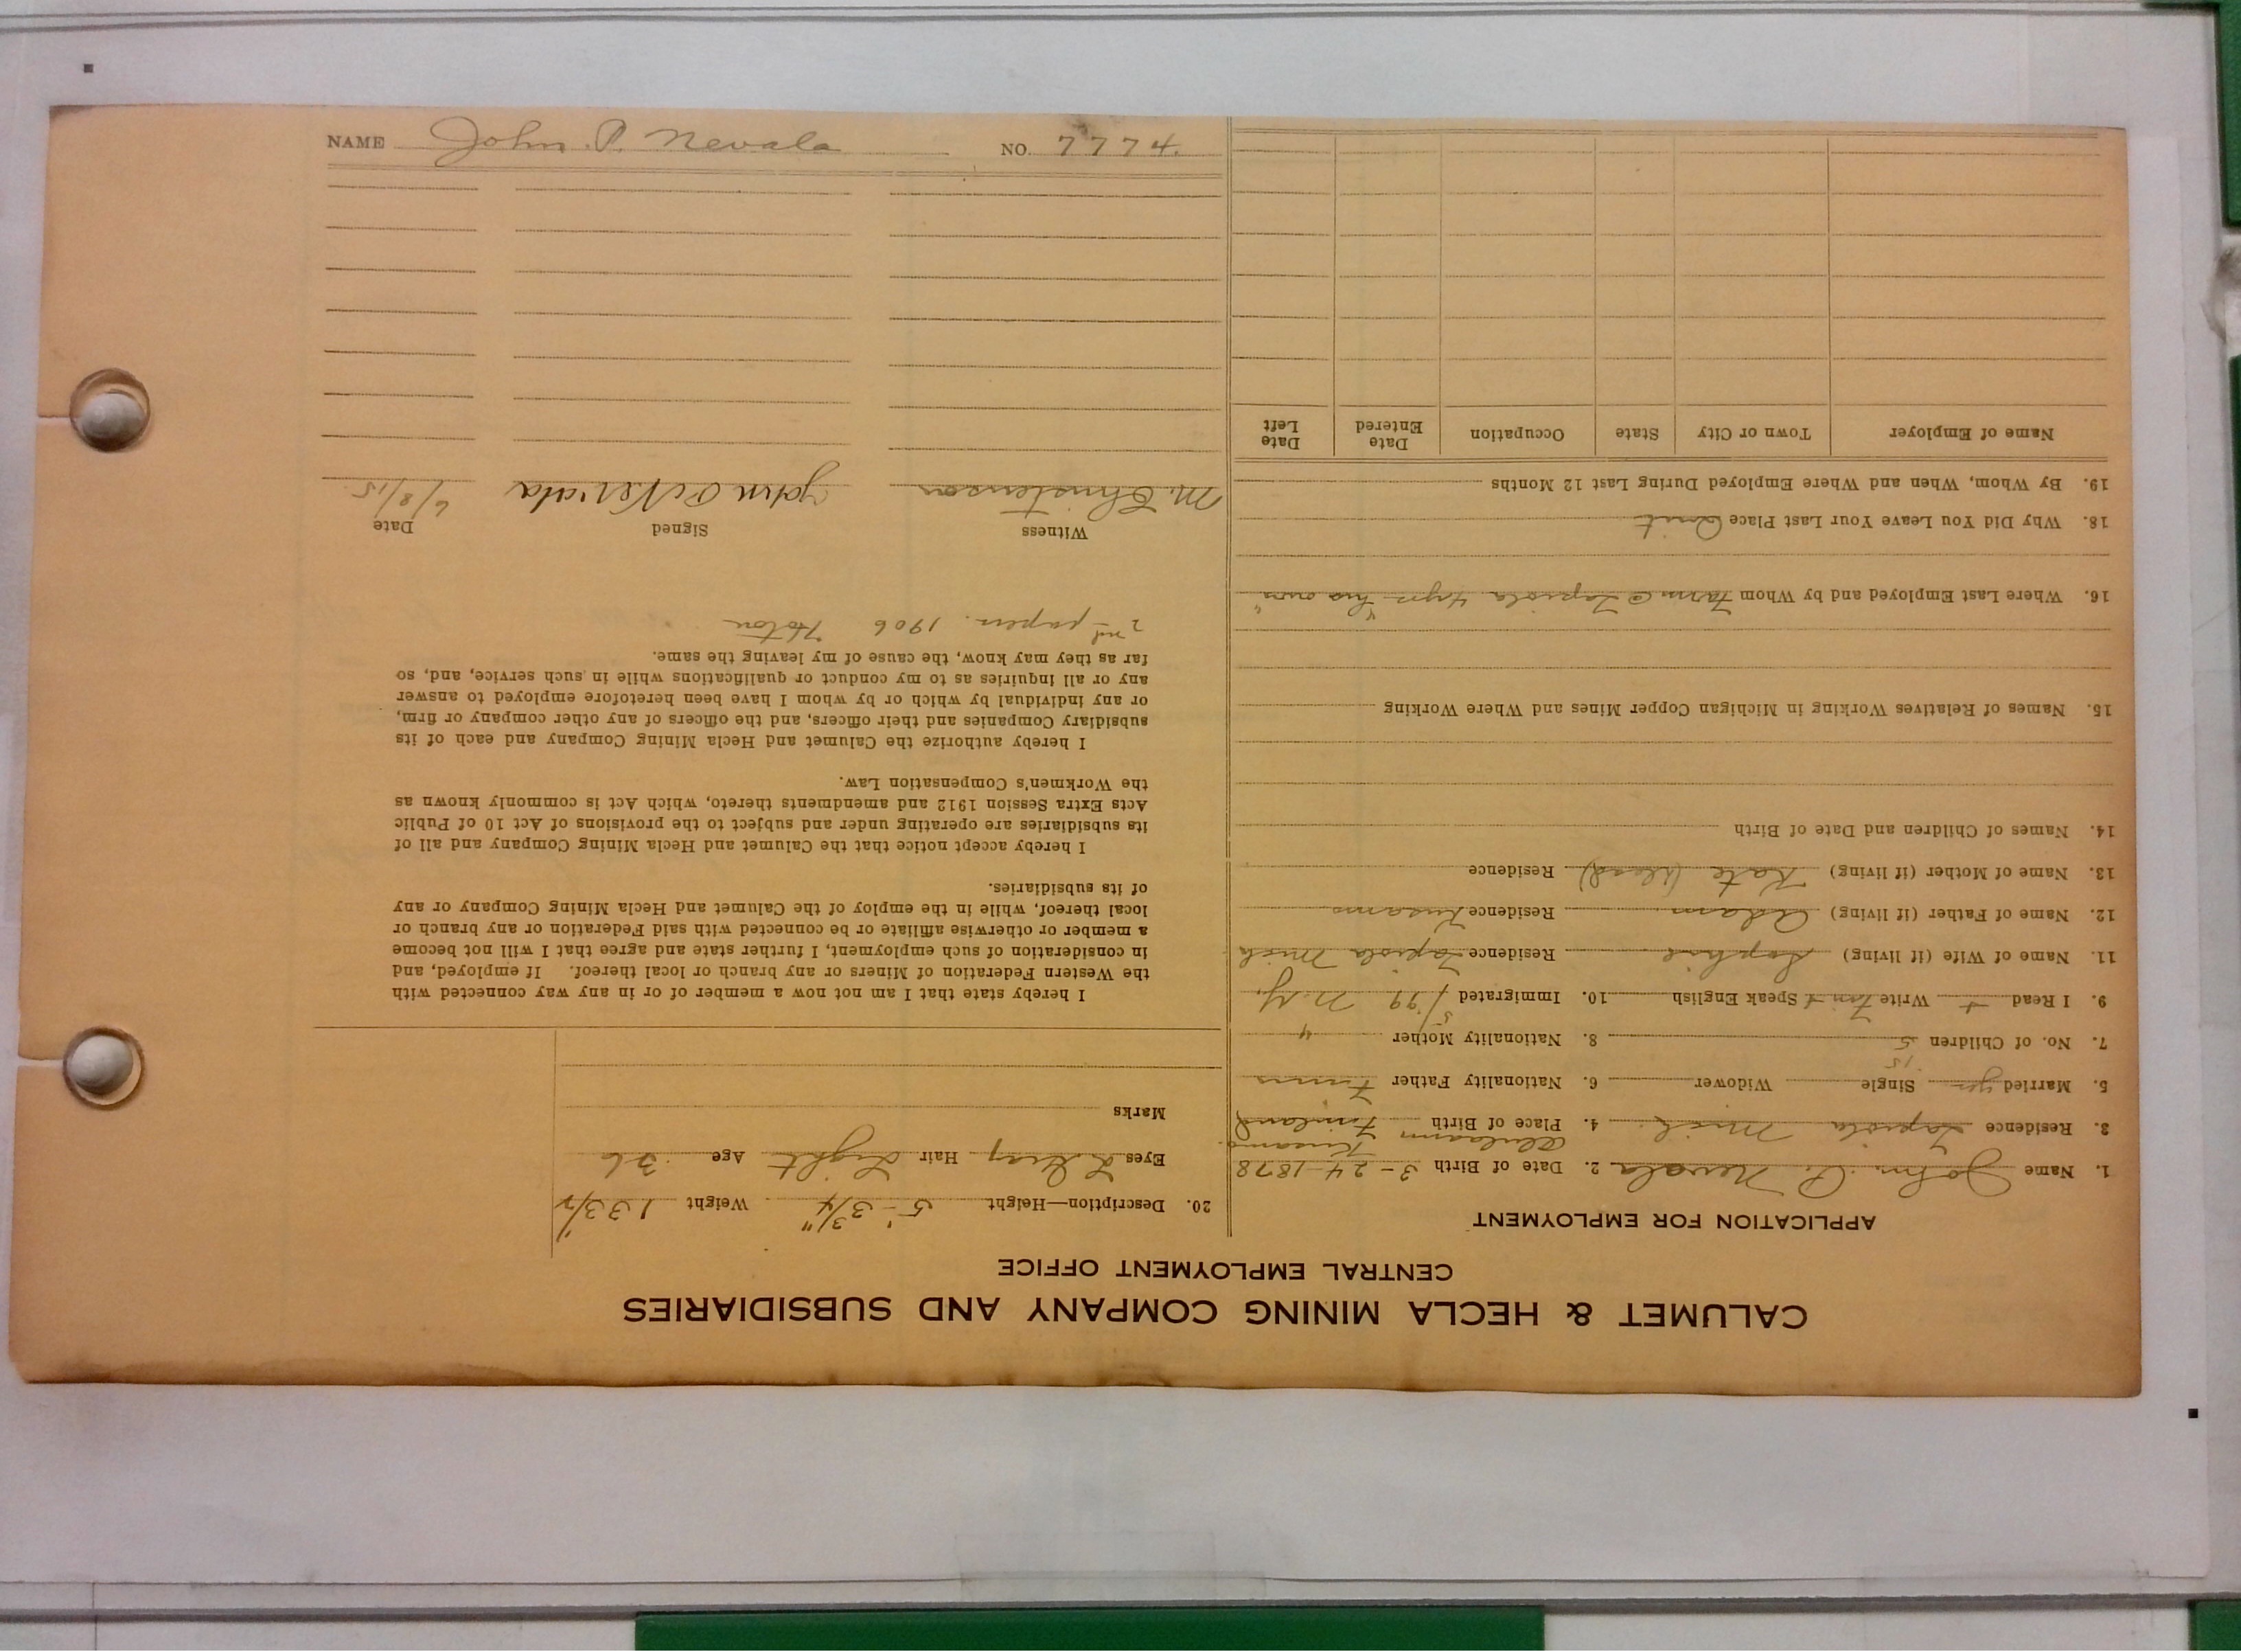 CALUMET & HECLA MINING COMPANY AND SUBSIDIARIES
CENTRAL EMPLOYMENT OFFICE
APPLICATION FOR EMPLOYMENT
1. Name John P. Nevala 2. Date of Birth 3-24-1878
3. Residence Tapiola Mich. 4. Place of Birth Kusamo Finland
5. Married yes Single Widower 6. Nationality Father Finns
15
7. No. of Children 5 8. Nationality Mother "
9. I Read + Write Finn + Speak English 10. Immigrated 5/99 N.Y.
11. Name of Wife (if living) Sophie Residence Tapiola Mich
12. Name of Father (if living) Adam Residence Kusamo
13. Name of Mother (if living) Kate (dead) Residence
14. Names of Children and Date of Birth
15. Names of Relatives Working in Michigan Copper Mines and Where Working
16. Where Last Employed and by Whom Farm @ Tapiola 4yrs "his own"
18. Why Did You Leave Your Last Place Quit
19. By Whom, When and Where Employed During Last 12 Months
Name of Employer Town or City State Occupation Date Entered Date Left
20. Description—Height 5'-3 3/4" Weight 133 1/2"
Eyes L Gray Hair Light Age 36
Marks
I hereby state that I am not now a member of or in any way connected with
the Western Federation of Miners or any branch or local thereof. If employed, and
in consideration of such employment, I further state and agree that I will not become
a member or otherwise affiliate or be connected with said Federation or any branch or
local thereof, while in the employ of the Calumet and Hecla Mining Company or any
of its subsidiaries.
I hereby accept notice that the Calumet and Hecla Mining Company and all of
its subsidiaries are operating under and subject to the provisions of Act 10 of Public
Acts Extra Session 1912 and amendments thereto, which Act is commonly known as
the Workmen's Compensation Law.
I hereby authorize the Calumet and Hecla Mining Company and each of its
subsidiary Companies and their officers, and the officers of any other company or firm,
or any individual by which or by whom I have been heretofore employed to answer
any or all inquiries as to my conduct or qualifications while in such service, and, so
far as they may know, the cause of my leaving the same.
2nd papers. 1906 Hoton
Witness Signed Date
M. Christenson John P Nevala 6/8/15
NAME John P. Nevala NO. 7774.